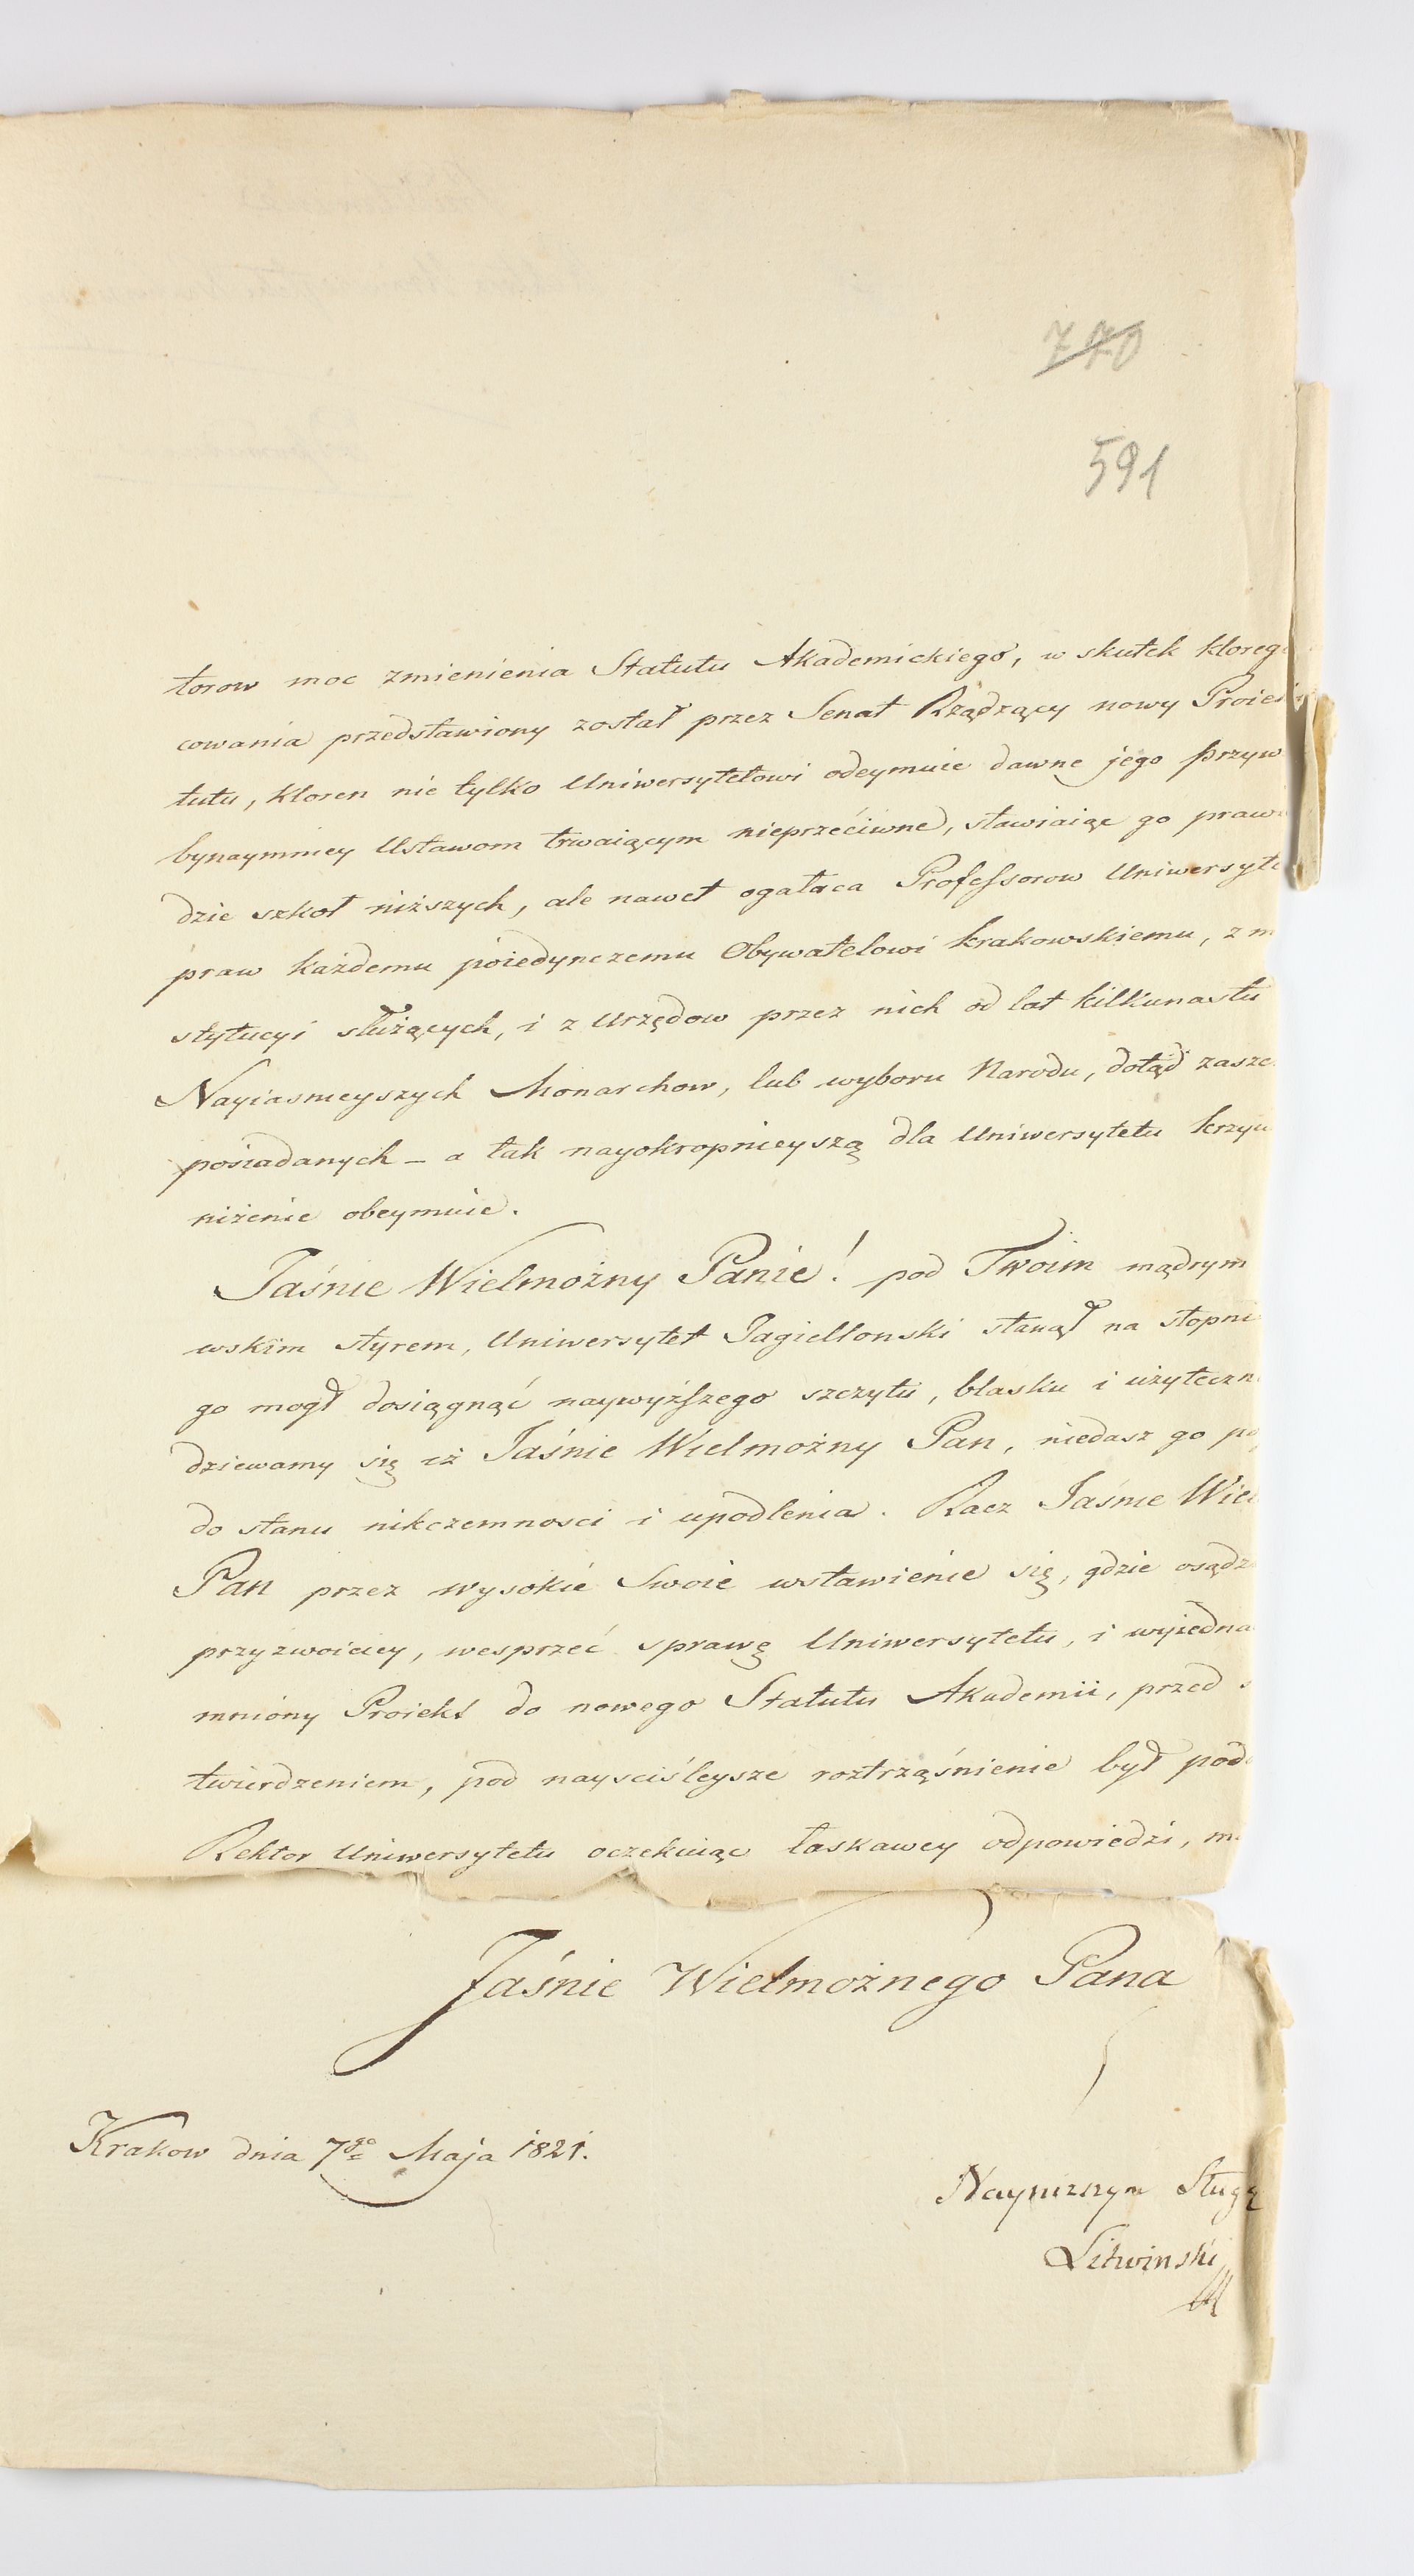 770
591
torow moc zmienienia Statutu Akademickiego, w skutek ktoreg
cowania przedstawiony został przez Senat Rządzący nowy Proie
tutu, ktoren nie tylko Uniwersytetowi odeymuie dawne jego przyw
bynaymniey Ustawom trwaiącym nieprzeciwne, stawiaiąc go praw
dzie szkoł niższych, ale nawet ogałaca Professorow Uniwersyte
praw każdemu poiedynczemu Obywatelowi krakowskiemu, z m
stytucyi służących, i z Urzędow przez nich od lat kilkunastu
Nayiasnieyszych Monarchow, lub wyboru Narodu, dotąd zaszc
posiadanych – a tak nayokropnieyszą dla Uniwersytetu krzyw
niżenie obeymuie.
Jaśnie Wielmożny Panie! pod Twoim mądrym
wskim styrem, Uniwersytet Jagiellonski stanął na stopni
go mogł dosiągnąć naywyższego szczytu, blasku i użyteczn
dziewamy się iż Jaśnie Wielmożny Pan, niedasz go po
do stanu nikczemnosci i upodlenia. Racz Jaśnie Wiel
Pan przez wysokie Swoie wstawienie się, gdzie osądz
przyzwoiciey, wesprzeć sprawę Uniwersytetu, i wyiedna
mniony Proiekt do nowego Statutu Akademii, przed s
twierdzeniem, pod nayściśleysze roztrząśnienie był pod
Rektor Uniwersytetu oczekuiąc łaskawey odpowiedzi, m
Jaśnie Wielmożnego Pana
Krakow dnia 7go Maja 1821.
Nayniższym Sługą
Litwinski